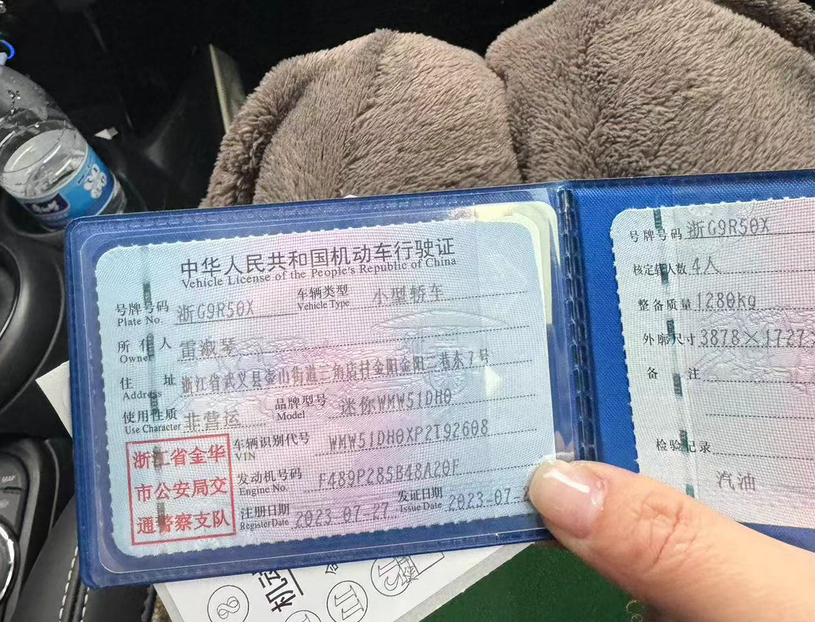 中华人民共和国机动车行驶证
Vehicle License of the People's Republic of China
号牌号码 浙G9R50X 车辆类型 小型轿车
Plate No. Vehicle Type
所有人 雷淑琴
Owner
住址 浙江省武义县壶山街道三角店村金阳金阳二巷东7号
Address
使用性质 非营运 品牌型号 迷你WMW51DH0
Use Character Model
浙江省金华
市公安局交
通警察支队
车辆识别代号 WMW51DH0XP2T92608
VIN
发动机号码 F489P285B48A20F
Engine No.
注册日期 2023-07-27 发证日期 2023-07-2
Register Date Issue Date
号牌号码 浙G9R50X
核定载人数 4人
整备质量 1280kg
外廓尺寸 3878×1727×
备注
检验记录
汽油